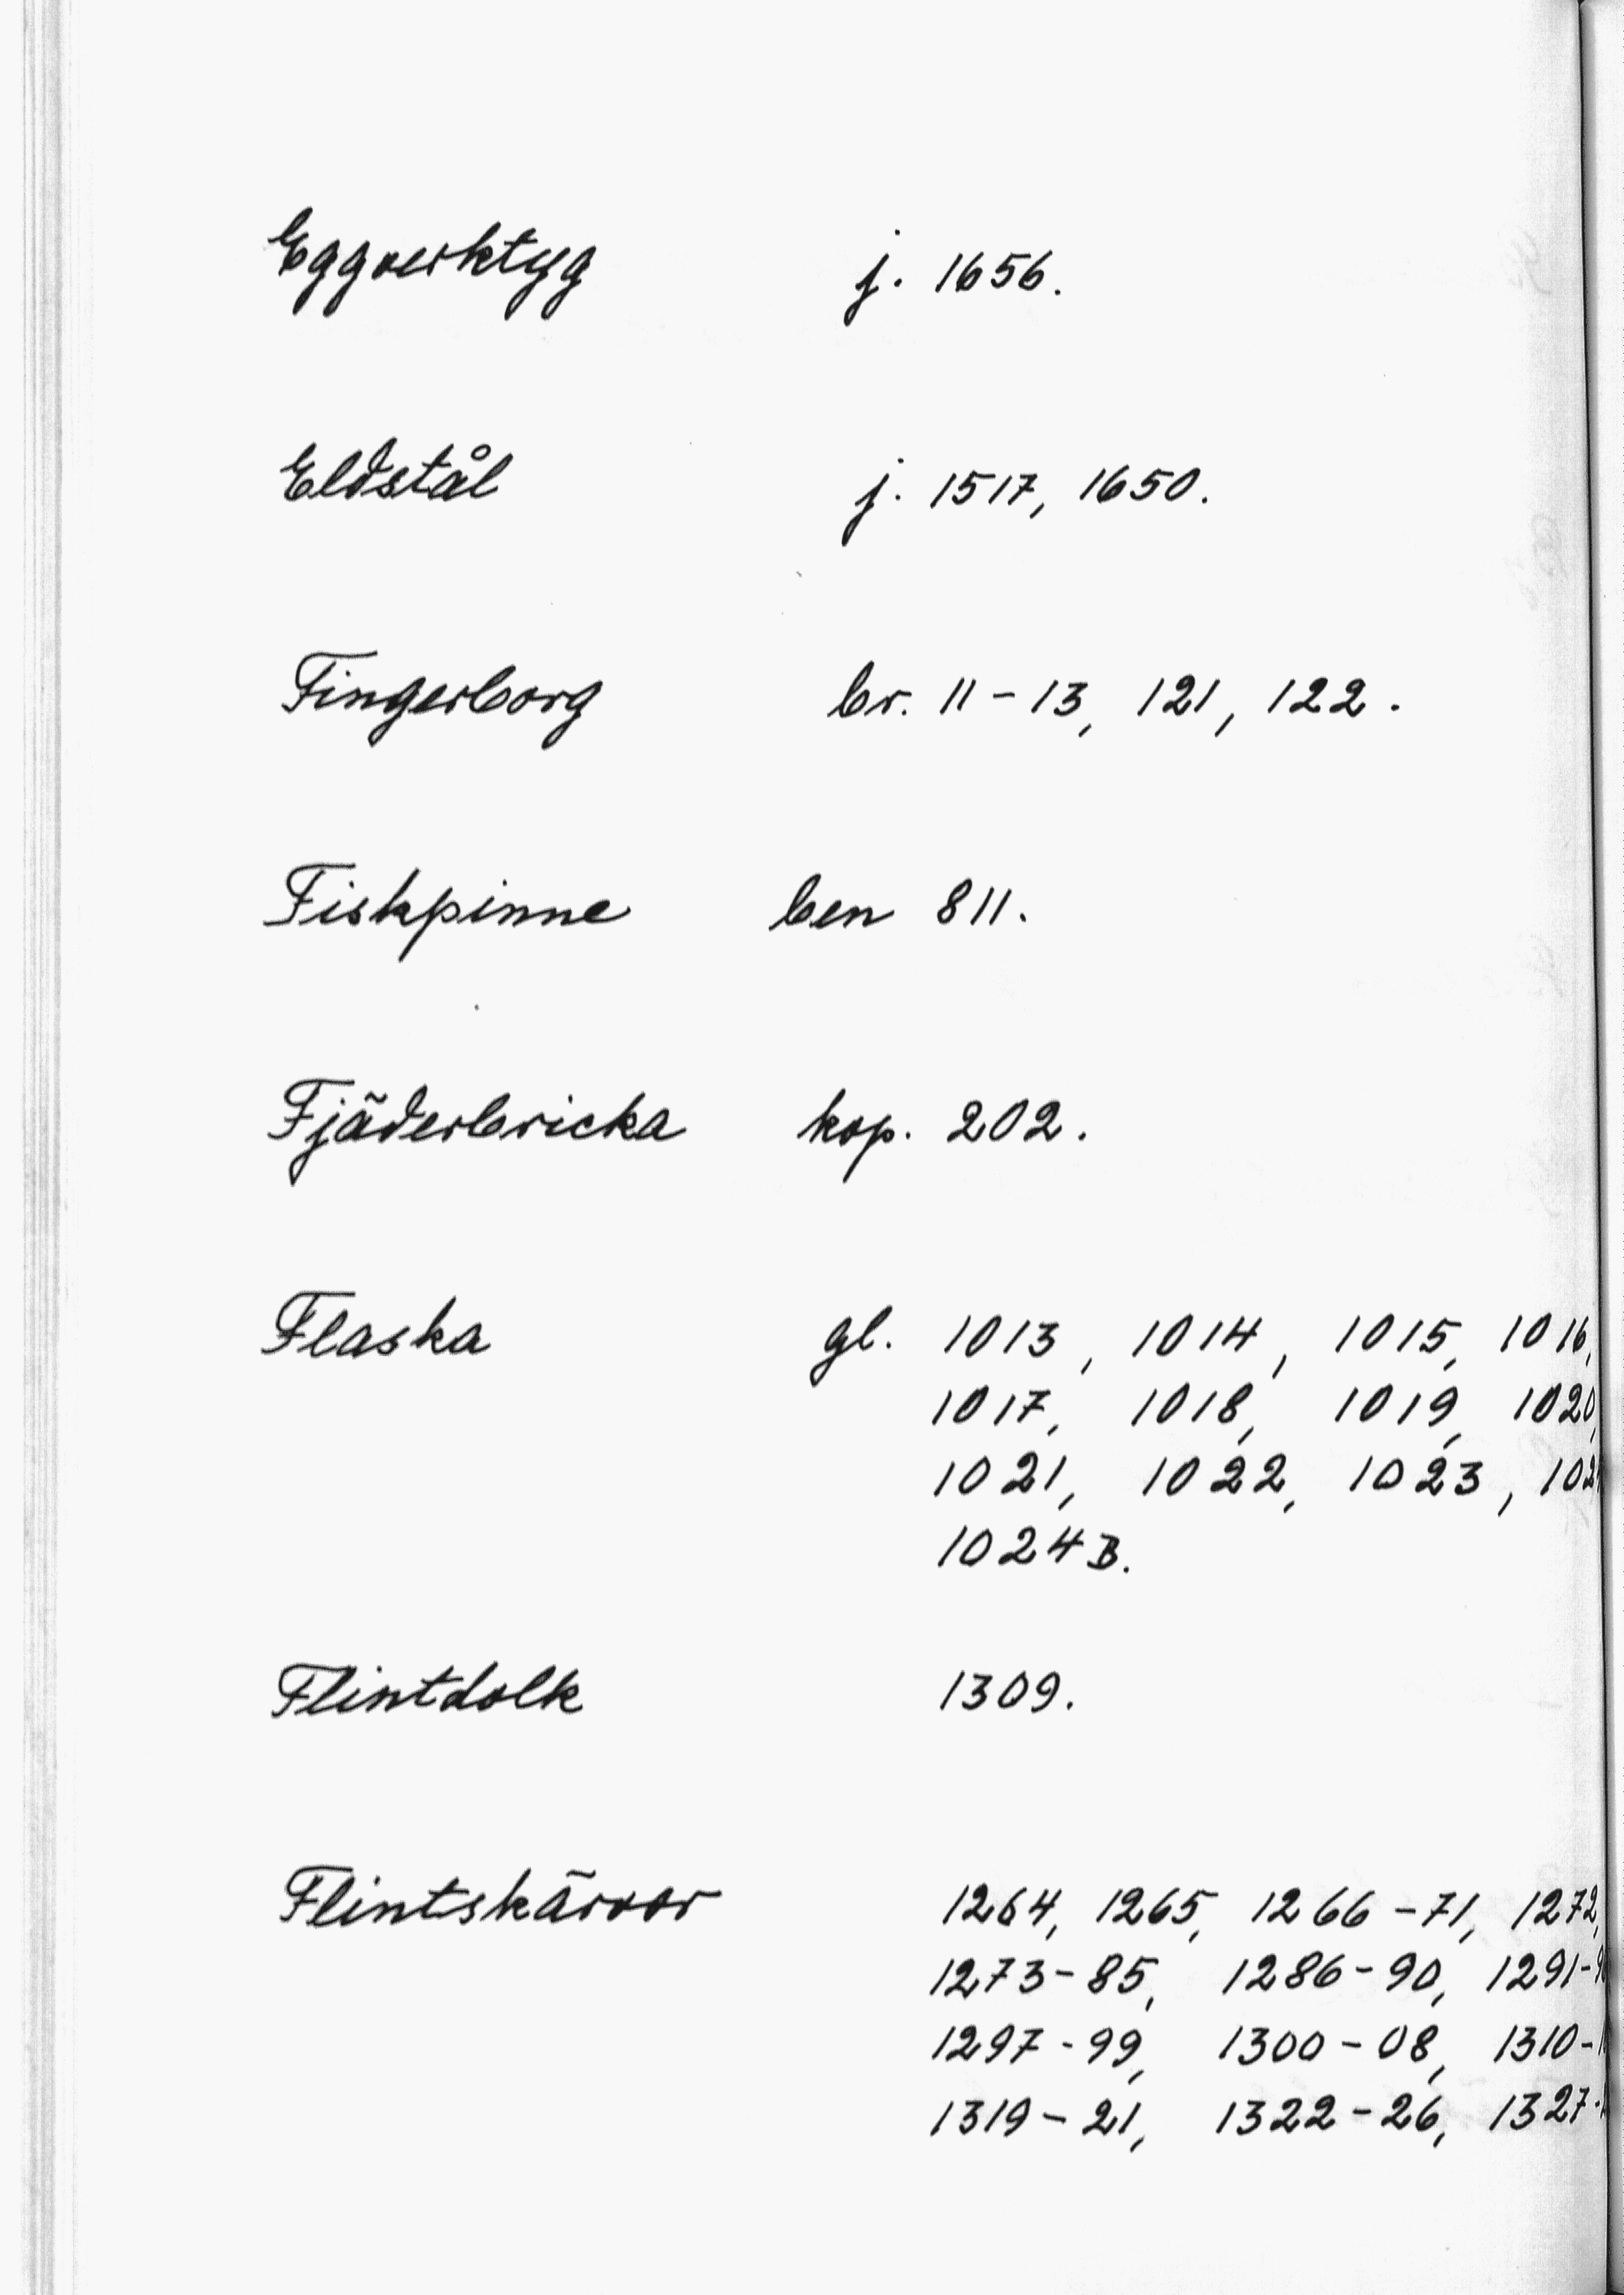 Eggverktyg j. 1656.
Eldstål j. 1517, 1650.
Fingerborg br. 11-13, 121, 122.
Fiskpinne ben 811.
Fjäderbricka kop. 202.
Flaska gl. 1013, 1014, 1015, 1016,
1017, 1018, 1019, 1020,
1021, 1022, 1023,
1024B.
Flintdolk 1309.
Flintskärvor 1264, 1265, 1266-71, 1272,
1273-85, 1286-90, 1291-
1297-99, 1300-08, 1310-
1319-21, 1322-26, 1327-